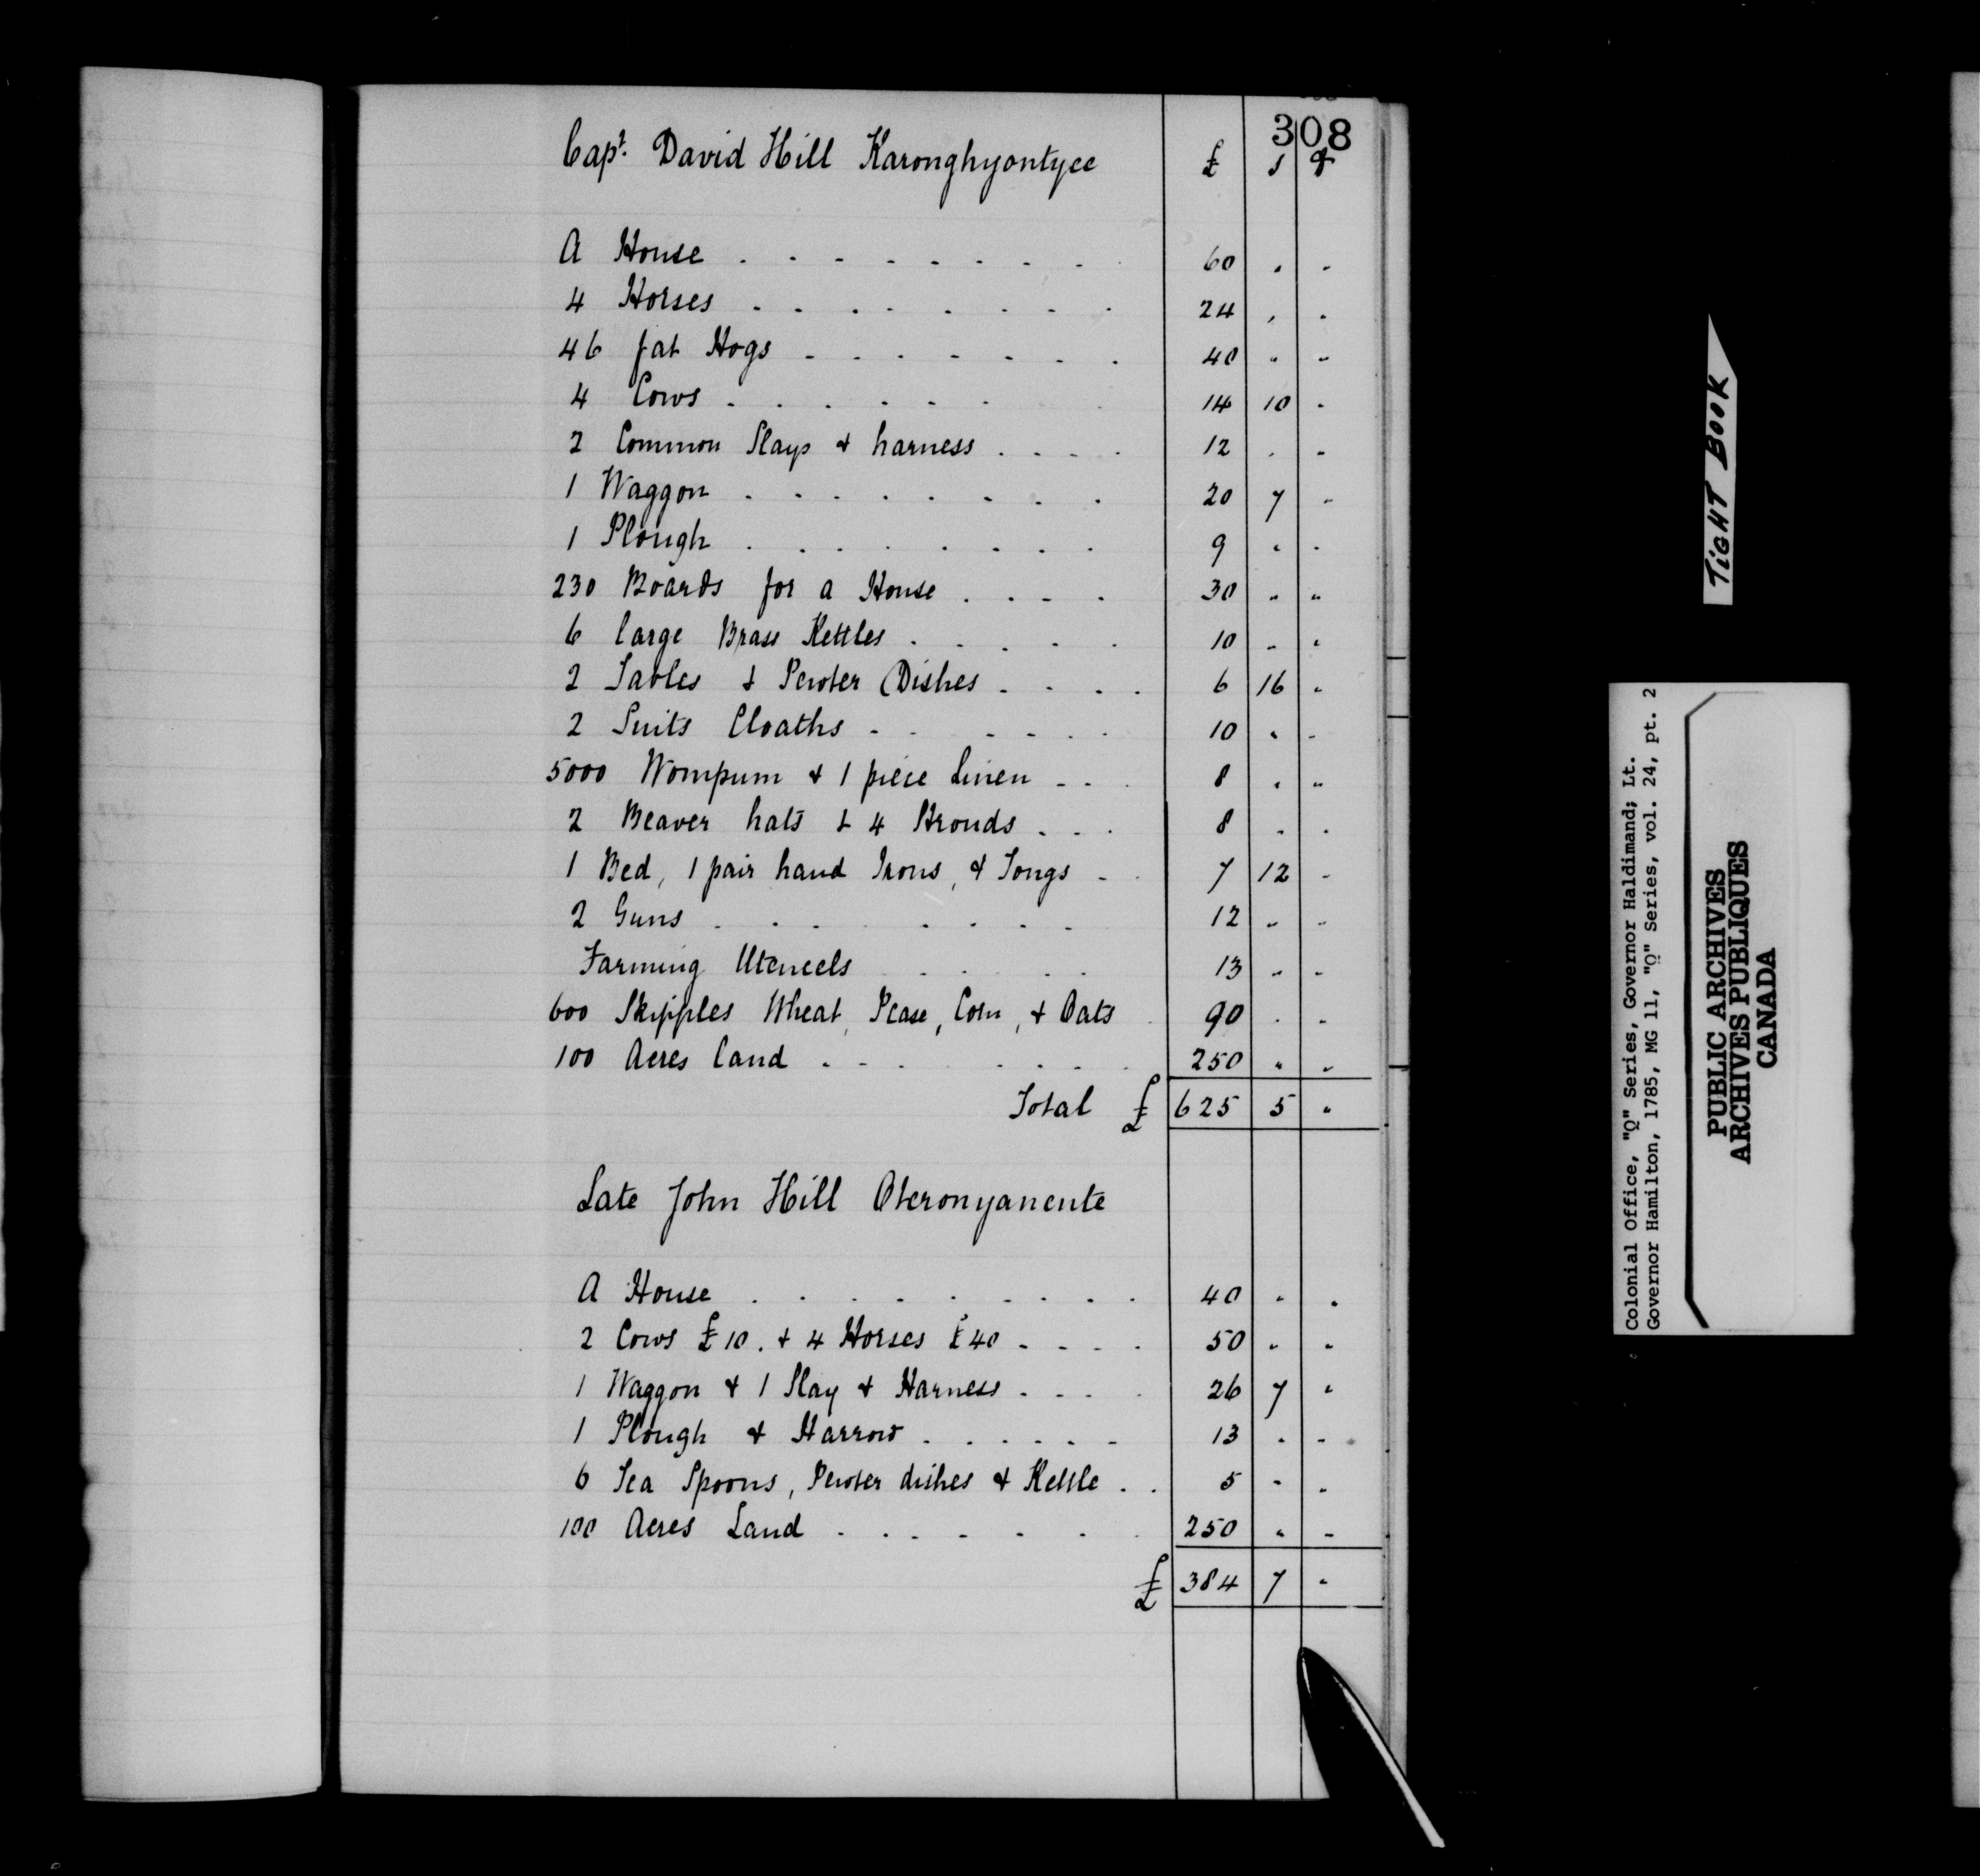 308
Capt. David Hill Karonghyontyee £ s d
A House . . . . . . . . 60 . .
4 Horses . . . . . . . . 24 . .
46 fat Hogs . . . . . . . 40 . .
4 Cows . . . . . . 14 10 .
2 Common Slays & harness . . . . 12 . .
1 Waggon . . . . . . . . 20 7 .
1 Plough . . . . . . . . 9 . .
230 Boards for a House . . . . 30 " "
6 large Brass Kettles . . . . . 10 . .
2 Tables & Pewter Dishes . . . . 6 16 "
2 Suits Cloaths . . . . . . 10 . .
5000 Wompum & 1 piece Linen . . . 8 . "
2 Beaver hats & 4 Strouds . . . 8 . .
1 Bed, 1 pair hand Irons, & Tongs . . 7 12 .
2 Guns . . . . . . . . 12 . .
Farming Utencels . . . . . 13 . .
600 Skipples Wheat, Pease, Corn, & Oats . 90 . .
100 Acres land . . . . . . . 250 " .
Total £ 625 5 "
Late John Hill Oteronyanente
A House . . . . . . . . . 40 . .
2 Cows £10. & 4 Horses £40 . . . . 50 . .
1 Waggon & 1 Slay & Harness . . . . 26 7 "
1 Plough & Harrow . . . . . . 13 . .
6 Tea Spoons, Pewter dishes & Kettle . . 5 . .
100 Acres Land . . . . . . . 250 " .
£ 384 7 "
TIGHT BOOK
Colonial Office, "Q" Series, Governor Haldimand; Lt.
Governor Hamilton, 1785, MG 11, "Q" Series, vol. 24, pt. 2
PUBLIC ARCHIVES
ARCHIVES PUBLIQUES
CANADA